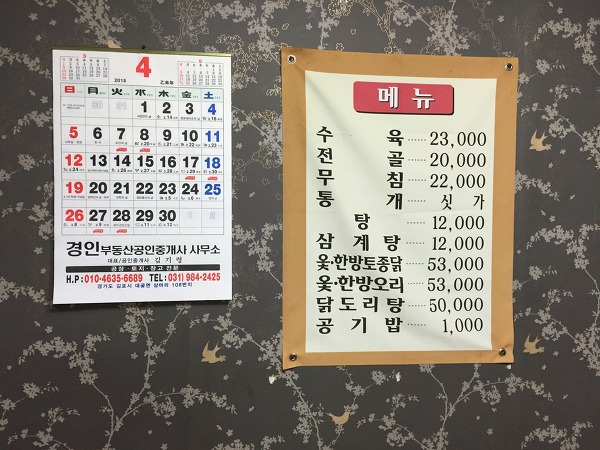 2015
4
乙未年
日 月 火 水 木 金 土
30 31 1 2 3 4
5 6 7 8 9 10 11
12 13 14 15 16 17 18
19 20 21 22 23 24 25
26 27 28 29 30 1 2
경인부동산공인중개사 사무소
대표/공인중개사 김기령
공장·토지·창고 전문
H.P: 010-4635-6689 TEL: 031) 984-2425
경기도 김포시 대곶면 상마리 108번지
메 뉴
수 육 ...... 23,000
전 골 ...... 20,000
무 침 ...... 22,000
통 개 ...... 싯 가
탕 ...... 12,000
삼 계 탕 ...... 12,000
옻·한방토종닭 ...... 53,000
옻·한방오리 ...... 53,000
닭 도 리 탕 ...... 50,000
공 기 밥 ...... 1,000